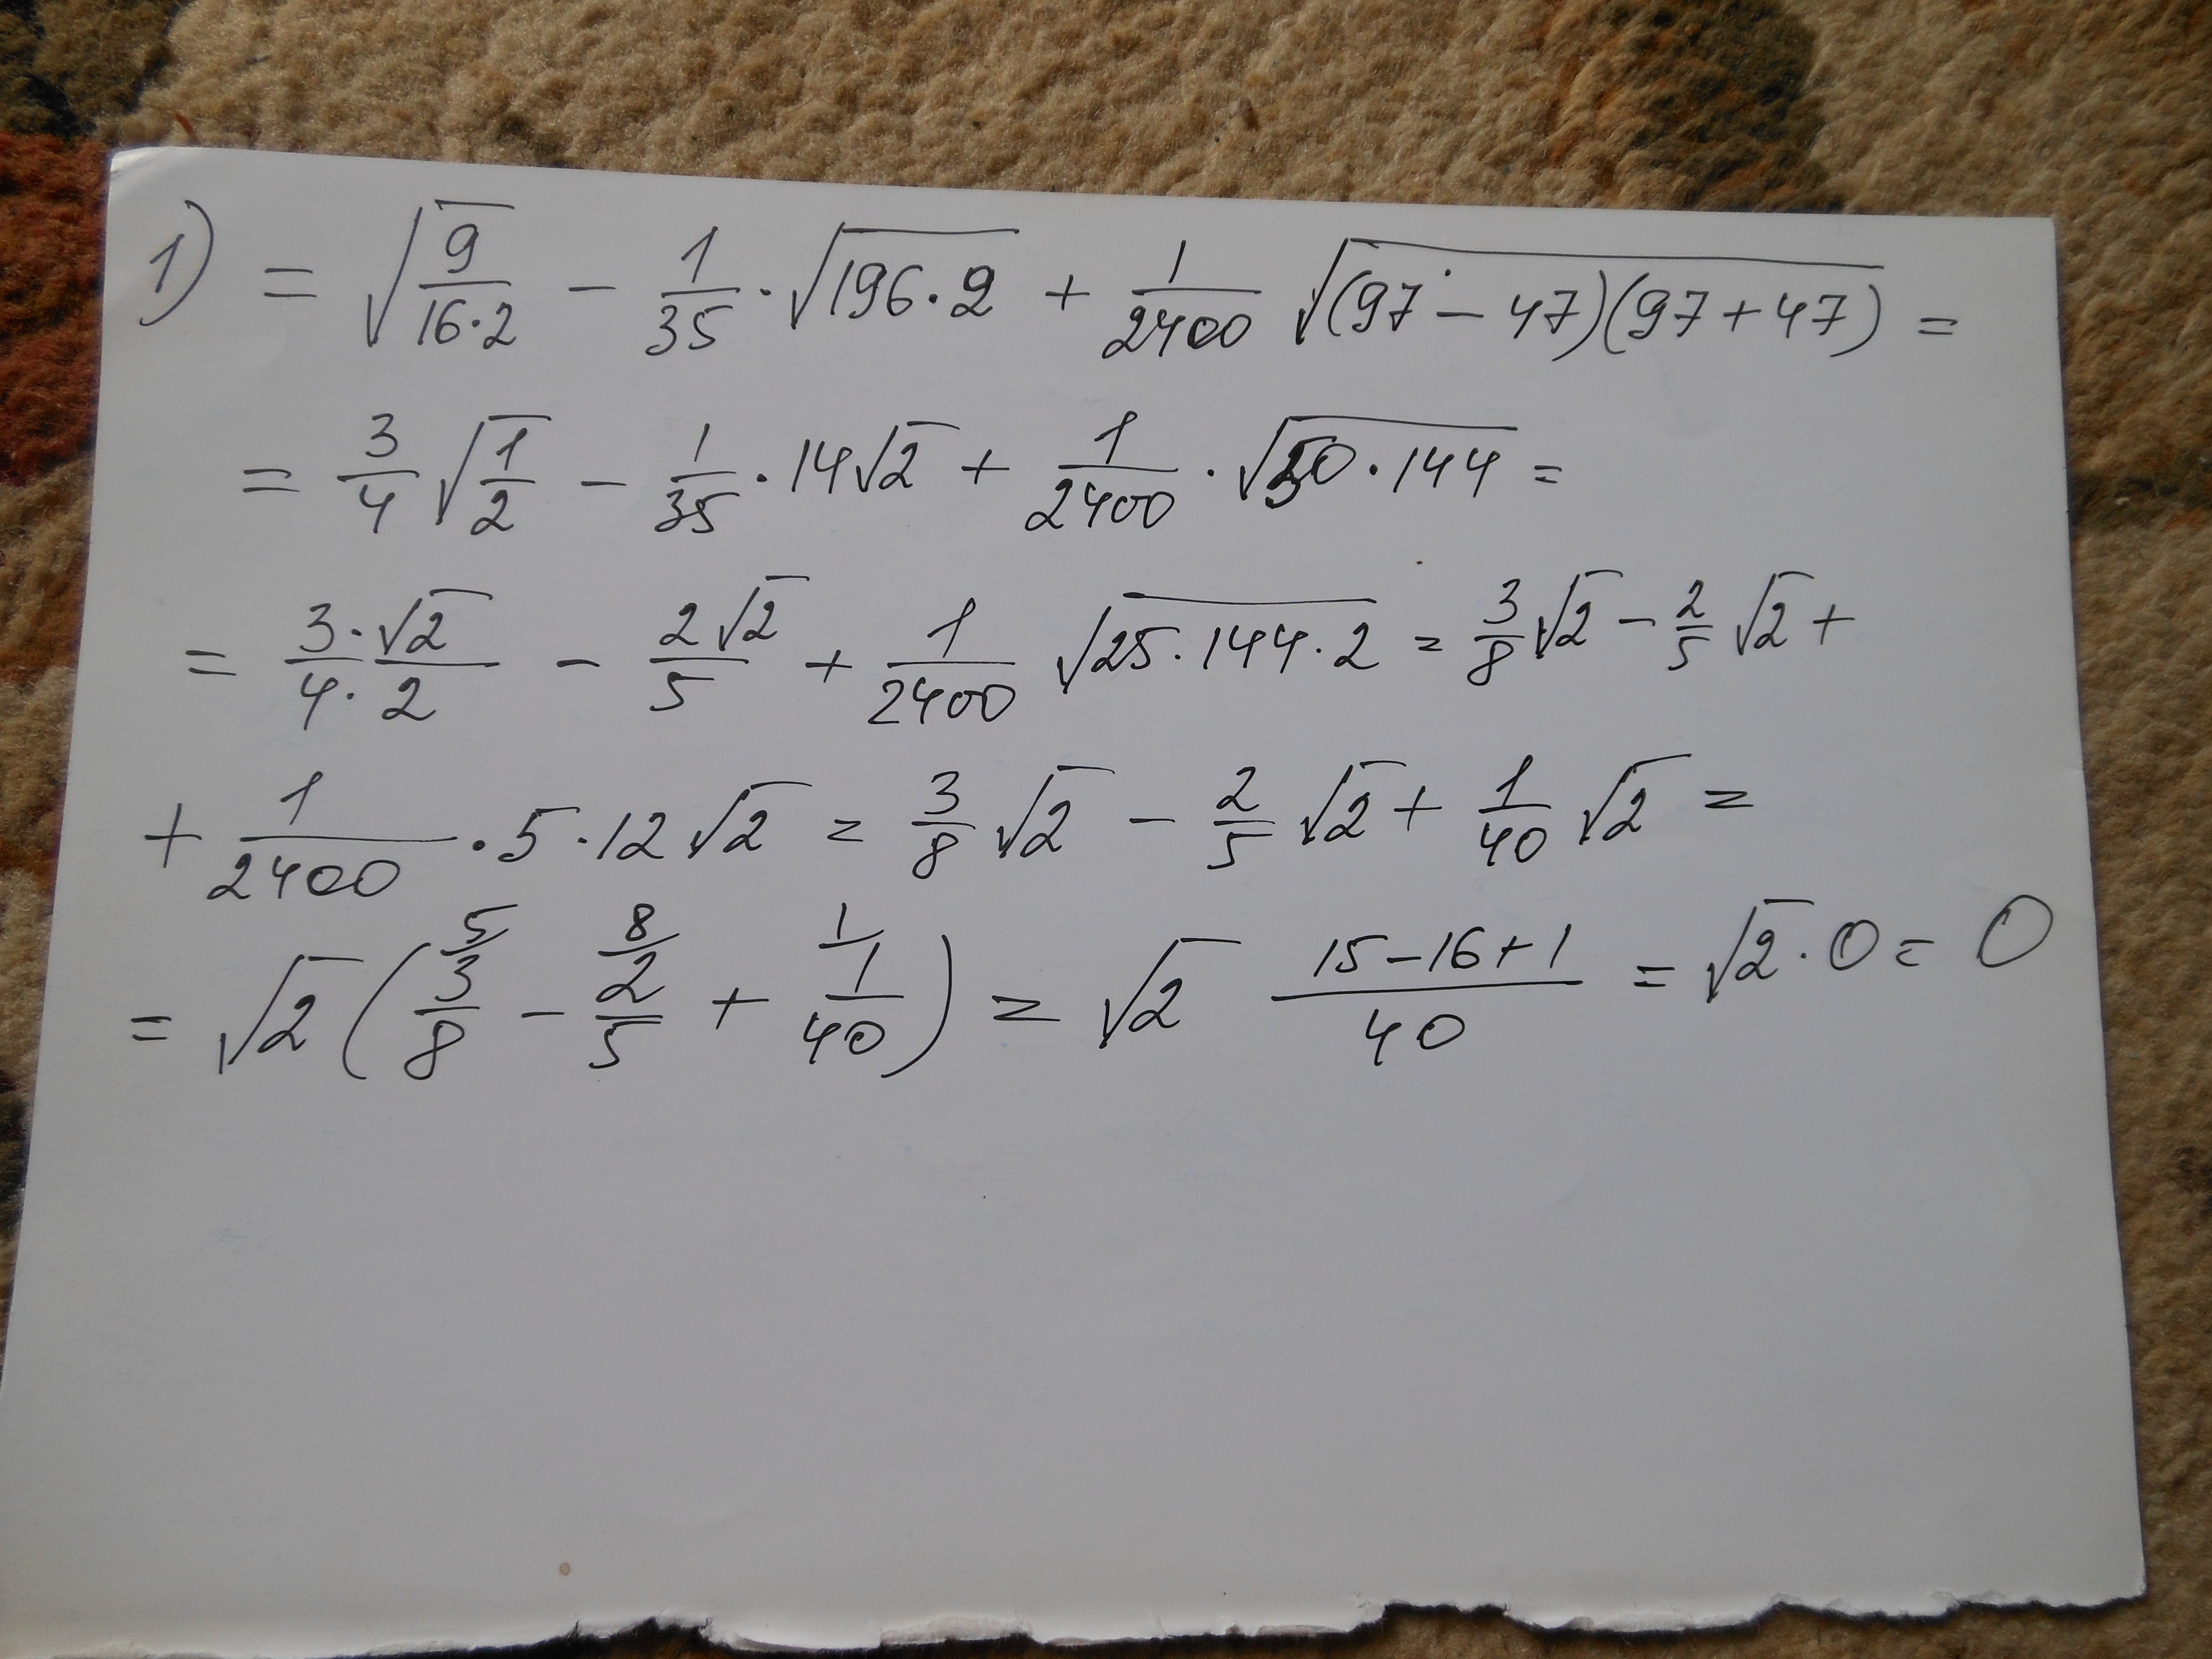 1) = √(9/(16·2)) − 1/35 · √(196·2) + 1/2400 √((97 − 47)(97 + 47)) =
= 3/4 √(1/2) − 1/35 · 14√2 + 1/2400 · √(50 · 144) =
= (3·√2)/(4·2) − 2√2/5 + 1/2400 √(25·144·2) = 3/8 √2 − 2/5 √2 +
+ 1/2400 · 5 · 12 √2 = 3/8 √2 − 2/5 √2 + 1/40 √2 =
= √2 (5/ 3/8 − 8/ 2/5 + 1/ 1/40) = √2 (15−16+1)/40 = √2 · 0 = 0